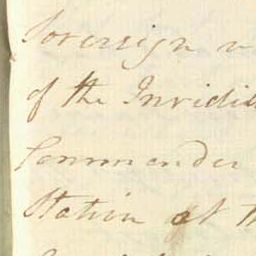 Sovereign
of the Juridic
Commander
Station at th